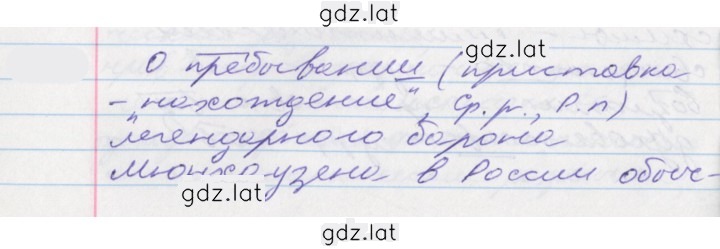 gdz.lat
О пребывании (приставка
- „нахождение“, ср.р., Р.п)
легендарного барона
gdz.lat
Мюнхаузена в России обыч-
gdz.lat
gdz.lat